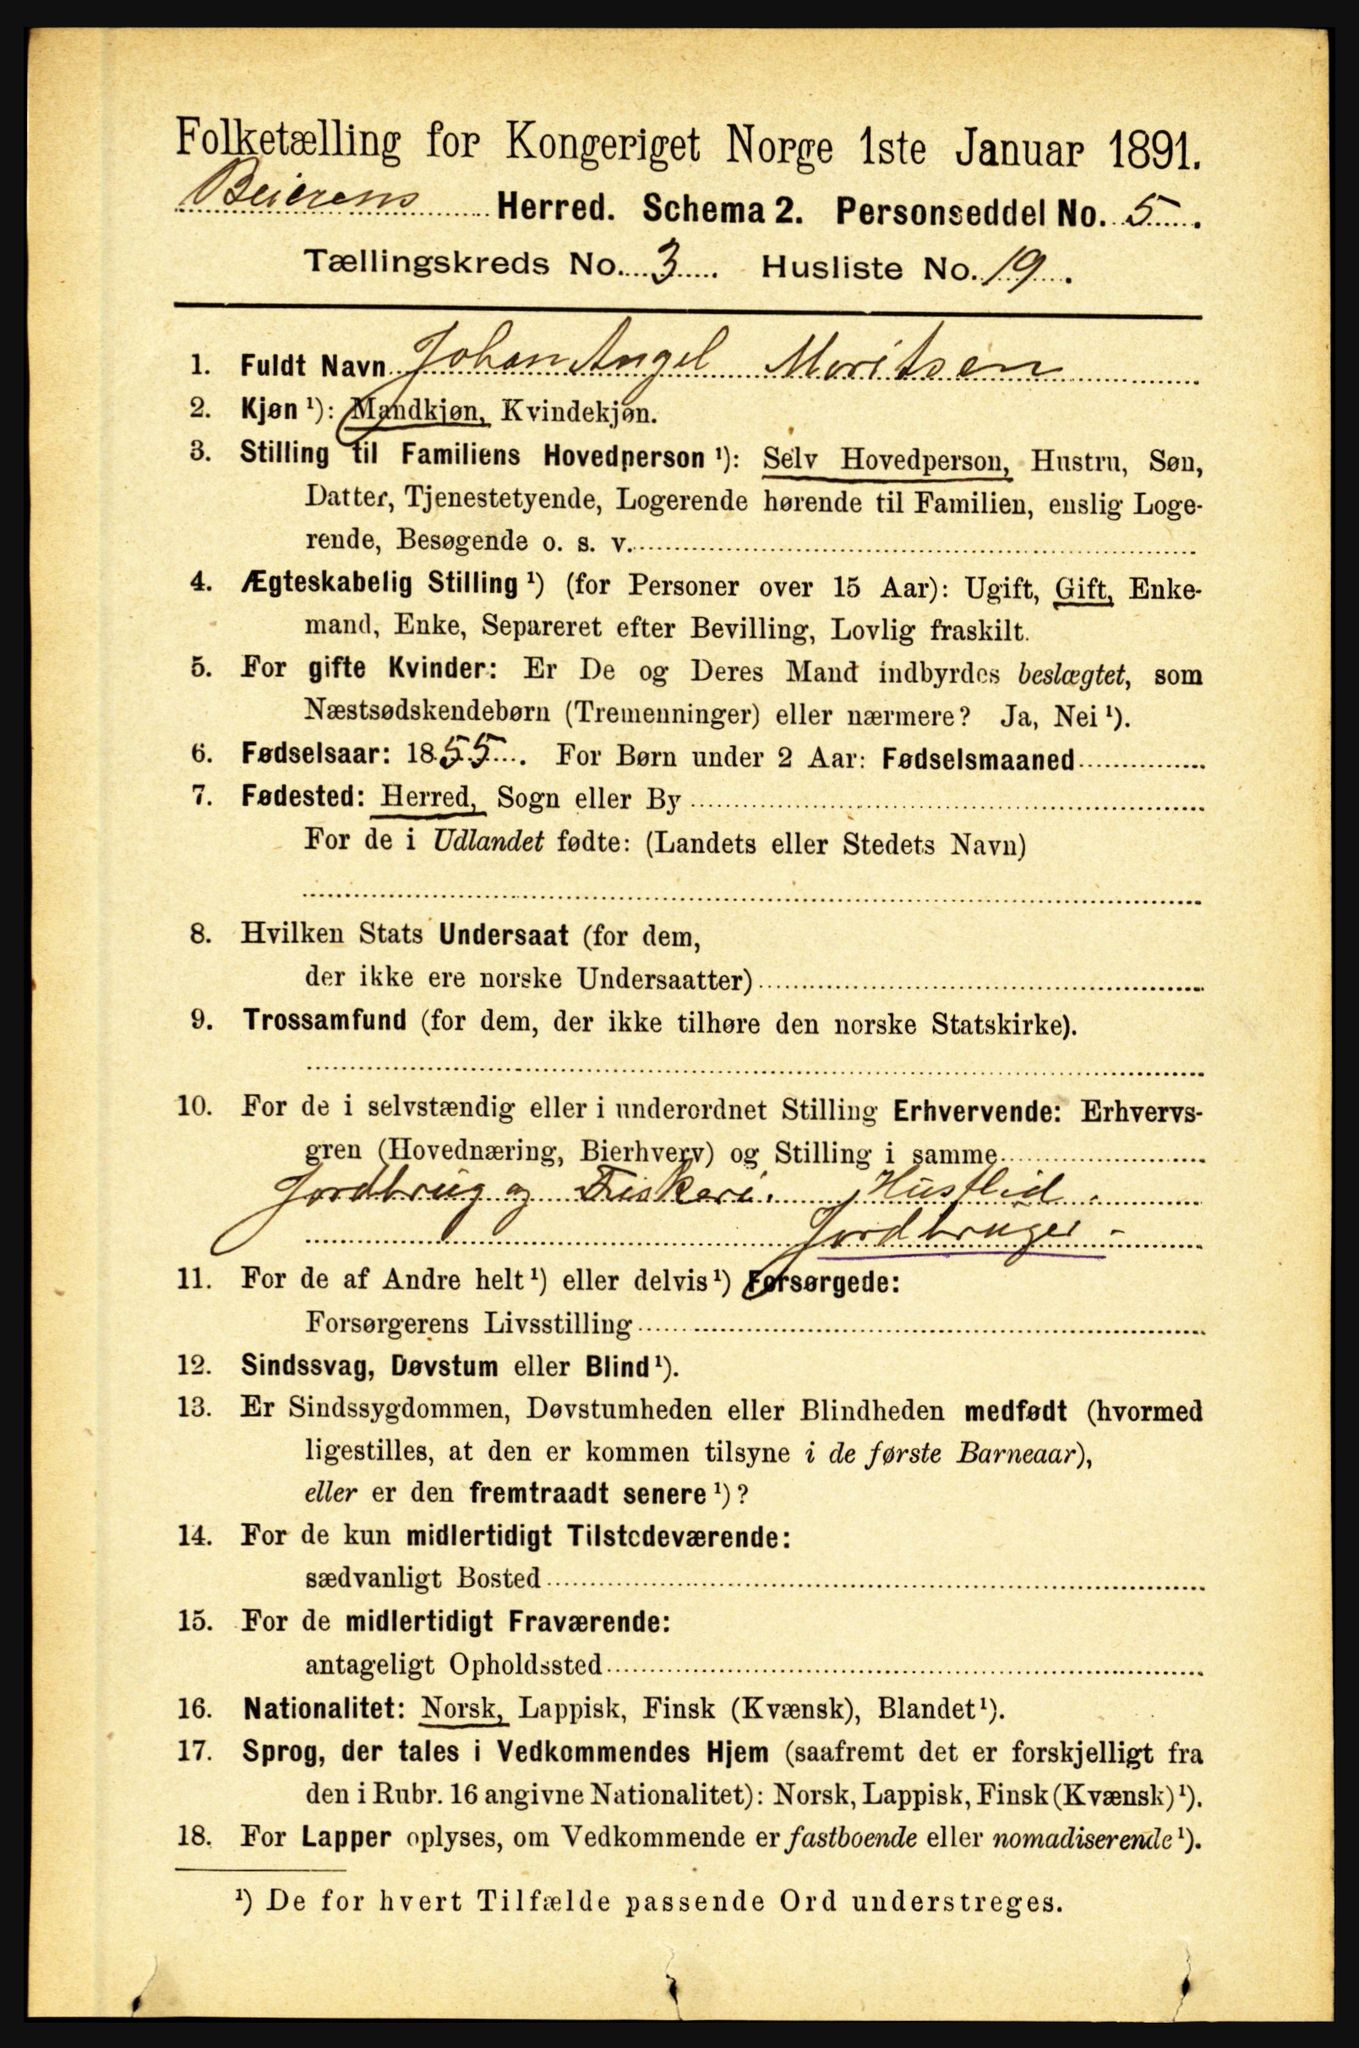 Folketælling for Kongeriget Norge 1ste Januar 1891.
Beierens Herred. Schema 2. Personseddel No. 5.
Tællingskreds No. 3. Husliste No. 19.
1. Fuldt Navn Johan Angel Moritsen
2. Kjøn ¹): Mandkjøn, Kvindekjøn.
3. Stilling til Familiens Hovedperson ¹): Selv Hovedperson, Hustru, Søn,
Datter, Tjenestetyende, Logerende hørende til Familien, enslig Loge-
rende, Besøgende o. s. v.
4. Ægteskabelig Stilling ¹) (for Personer over 15 Aar): Ugift, Gift, Enke-
mand, Enke, Separeret efter Bevilling, Lovlig fraskilt.
5. For gifte Kvinder: Er De og Deres Mand indbyrdes beslægtet, som
Næstsødskendebørn (Tremenninger) eller nærmere? Ja, Nei ¹).
6. Fødselsaar: 1855. For Børn under 2 Aar: Fødselsmaaned
7. Fødested: Herred, Sogn eller By
For de i Udlandet fødte: (Landets eller Stedets Navn)
8. Hvilken Stats Undersaat (for dem,
der ikke ere norske Undersaatter)
9. Trossamfund (for dem, der ikke tilhøre den norske Statskirke).
10. For de i selvstændig eller i underordnet Stilling Erhvervende: Erhvervs-
gren (Hovednæring, Bierhverv) og Stilling i samme
Jordbrug og Fiskeri. Husflid.
Jordbruger -
11. For de af Andre helt ¹) eller delvis ¹) Forsørgede:
Forsørgerens Livsstilling
12. Sindssvag, Døvstum eller Blind ¹).
13. Er Sindssygdommen, Døvstumheden eller Blindheden medfødt (hvormed
ligestilles, at den er kommen tilsyne i de første Barneaar),
eller er den fremtraadt senere ¹)?
14. For de kun midlertidigt Tilstedeværende:
sædvanligt Bosted
15. For de midlertidigt Fraværende:
antageligt Opholdssted
16. Nationalitet: Norsk, Lappisk, Finsk (Kvænsk), Blandet ¹).
17. Sprog, der tales i Vedkommendes Hjem (saafremt det er forskjelligt fra
den i Rubr. 16 angivne Nationalitet): Norsk, Lappisk, Finsk (Kvænsk) ¹).
18. For Lapper oplyses, om Vedkommende er fastboende eller nomadiserende ¹).
¹) De for hvert Tilfælde passende Ord understreges.